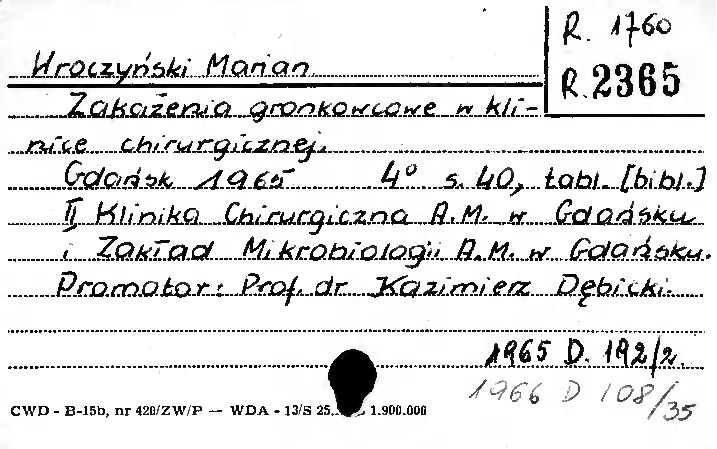 R. 1760
Wroczyński Marian
R. 2365
Zakażenia gronkowcowe w kli-
nice chirurgicznej.
Gdańsk 1965 4° s. 40, tabl. [bibl.]
II Klinika Chirurgiczna A.M. w Gdańsku
i Zakład Mikrobiologii A.M. w Gdańsku.
Promotor: Prof. dr Kazimierz Dębicki.
1965 D. 192/2.
1966 D 108/35
CWD - B-15b, nr 420/ZW/P — WDA - 13/S 25. 1.900.000